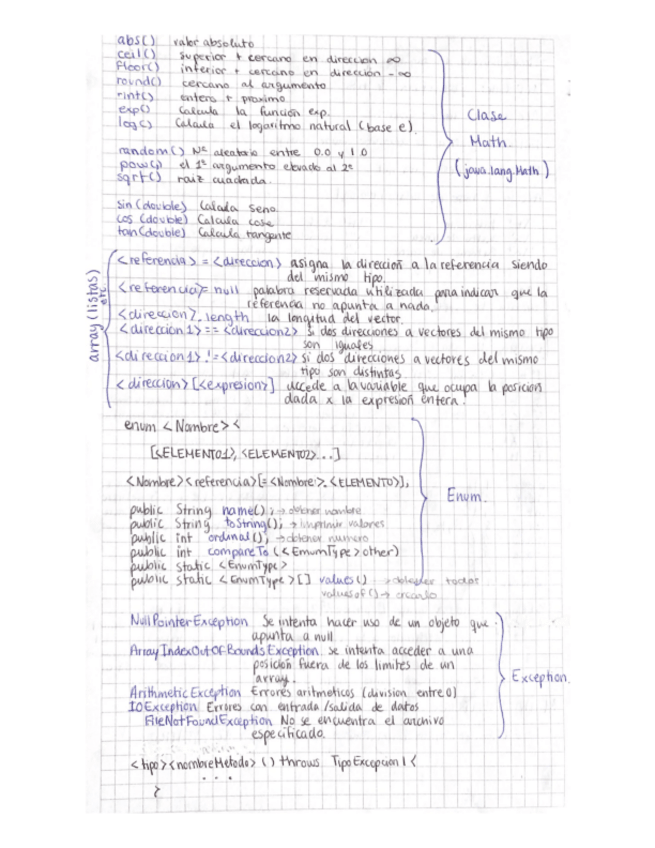 abs() valor absoluto
ceil() superior + cercano en direccion ∞
floor() inferior + cercano en dirección -∞
round() cercano al argumento
rint() entero + proximo
exp() Calcula la función exp.
log() Calcula el logaritmo natural (base e).
random() Nº aleatorio entre 0.0 y 1.0
pow(,) el 1º argumento elevado al 2º
sqrt() raiz cuadrada.
sin (double) Calcula seno
cos (double) Calcula cose
tan (double) Calcula tangente
Clase
Math
(java.lang.Math)
array (listas)
etc.
<referencia> = <direccion> asigna la dirección a la referencia siendo
del mismo tipo.
<referencia>= null palabra reservada utilizada para indicar que la
referencia no apunta a nada.
<direccion>.length la longitud del vector.
<direccion1> == <direccion2> si dos direcciones a vectores del mismo tipo
son iguales
<direccion1> != <direccion2> si dos direcciones a vectores del mismo
tipo son distintas
<direccion>[<expresion>] accede a la variable que ocupa la posición
dada x la expresión entera.
enum <Nombre> {
[<ELEMENTO1>, <ELEMENTO2>...]
<Nombre><referencia>[= <Nombre>.<ELEMENTO>],
public String name(); → obtener nombre
public String toString(); → imprimir valores
public int ordinal(); → obtener numero
public int compareTo (<EnumType> other)
public static <EnumType>
public static <EnumType>[] values() → obtener todos
valueSof() → crearlo
Enum.
NullPointerException Se intenta hacer uso de un objeto que
apunta a null.
ArrayIndexOutOfBoundsException se intenta acceder a una
posición fuera de los limites de un
array.
ArithmeticException Errores aritmeticos (division entre 0)
IOException Errores con entrada/salida de datos
FileNotFoundException No se encuentra el archivo
especificado.
Exception.
<tipo><nombreMetodo> () throws TipoExcepcion1 {
...
}